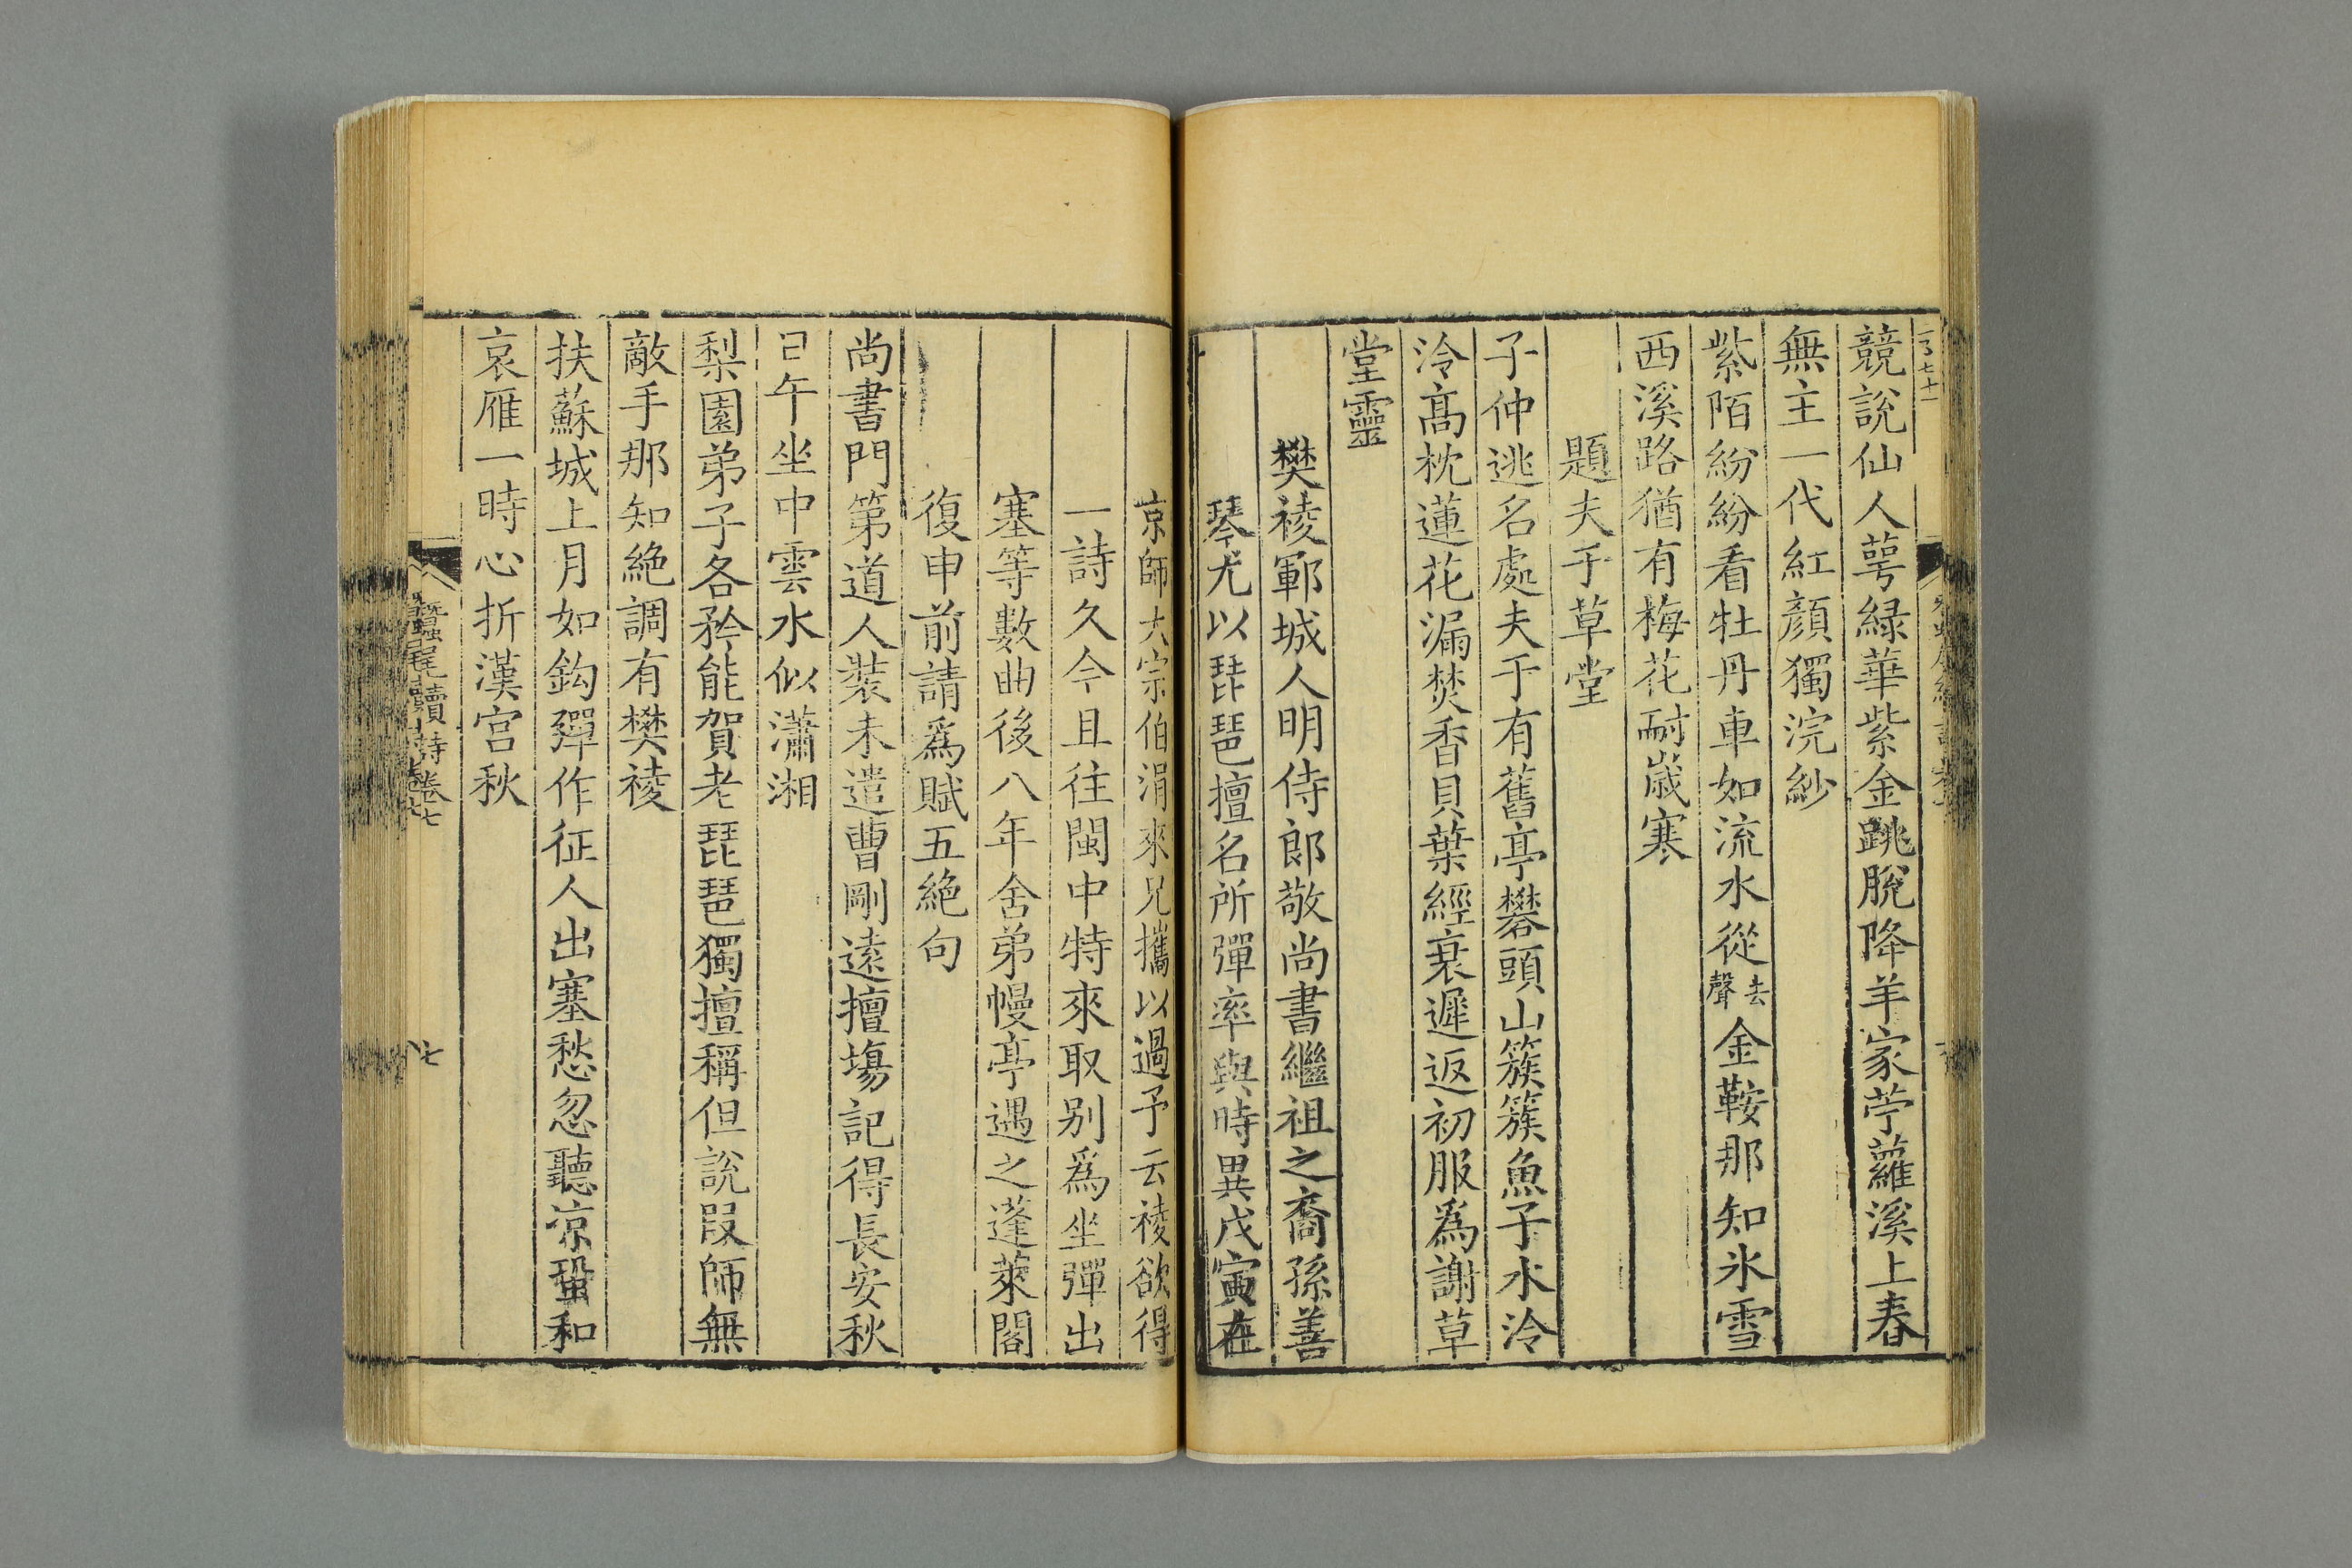 競說仙人萼緑華紫金跳脫降羊家苧蘿溪上春
無主一代紅顏獨浣紗
紫陌紛紛看牡丹車如流水從去聲金鞍那知氷雪
西溪路猶有梅花耐歲寒
題夫于草堂
子仲逃名處夫于有舊亭礬頭山簇簇魚子水泠
泠高枕蓮花漏焚香貝葉經衰遲返初服爲謝草
堂靈
樊祾鄆城人明侍郎敬尚書繼祖之裔孫善
琴尤以琵琶擅名所彈率與時異戊寅在
京師大宗伯涓來兄攜以過予云祾欲得
一詩久今且往閩中特來取别爲坐彈出
塞等數曲後八年舍弟幔亭遇之蓬萊閣
復申前請爲賦五絶句
尚書門第道人裝未遣曹剛遠擅塲記得長安秋
日午坐中雲水似瀟湘
梨園弟子各矜能賀老琵琶獨擅稱但說段師無
敵手那知絶調有樊祾
扶蘇城上月如鈎彈作征人出塞愁忽聽凉蛩和
哀雁一時心折漢宫秋
蠶尾續詩卷七
七